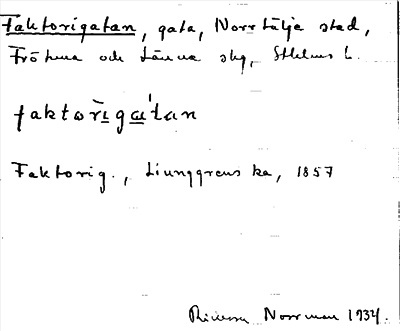 Faktorigatan, gata, Norrtälje stad,
Frötuna och Länna skg, Sthlms l.
faktori̱ga̱tan
Faktorig., Ljunggrens ka, 1857
Norrman 1934.